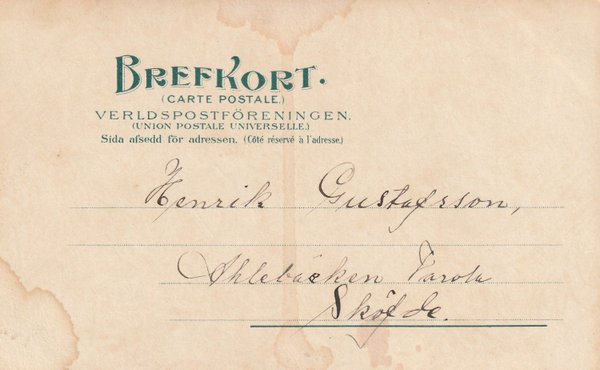 BREFKORT.
(CARTE POSTALE.)
VERLDSPOSTFÖRENINGEN.
(UNION POSTALE UNIVERSELLE.)
Sida afsedd för adressen. (Côté réservé à l'adresse.)
Henrik Gustafsson,
Ahlebäcken Varola
Sköfde.